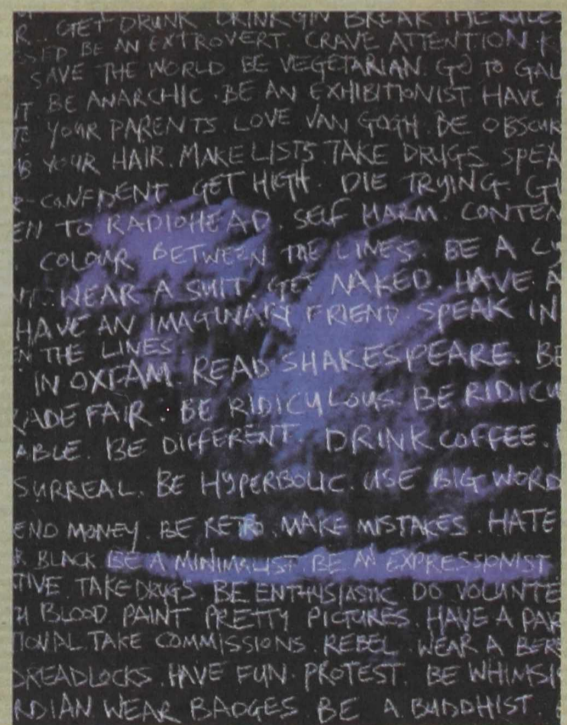 R. GET DRUNK DRINK GIN BREAK THE RULES
BE AN EXTROVERT. CRAVE ATTENTION.
SAVE THE WORLD BE VEGETARIAN. GO TO
BE ANARCHIC. BE AN EXHIBITIONIST HAVE
YOUR PARENTS. LOVE VAN GOGH. BE
YOUR HAIR. MAKE LISTS TAKE DRUGS
CONFIDENT. GET HIGH. DIE TRYING.
TO RADIOHEAD. SELF HARM.
COLOUR BETWEEN THE LINES. BE A
WEAR A SUIT. GET NAKED. HAVE A
HAVE AN IMAGINARY FRIEND SPEAK IN
THE LINES
IN OXFAM. READ SHAKESPEARE. BE
FAIR. BE RIDICULOUS. BE
ABLE. BE DIFFERENT. DRINK COFFEE.
SURREAL. BE HYPERBOLIC. USE BIG WORD
END MONEY. BE RETRO. MAKE MISTAKES. HATE
BLACK. BE A MINIMALIST. BE AN EXPRESSIONIST
TIVE TAKE DRUGS. BE ENTHUSIASTIC DO VOLUNTE
BLOOD. PAINT PRETTY PICTURES. HAVE A PAR
IONAL. TAKE COMMISSIONS. REBEL. WEAR A BER
DREADLOCKS. HAVE FUN. PROTEST. BE WHIMSI
RDIAN WEAR BADGES BE A BUDDHIST.